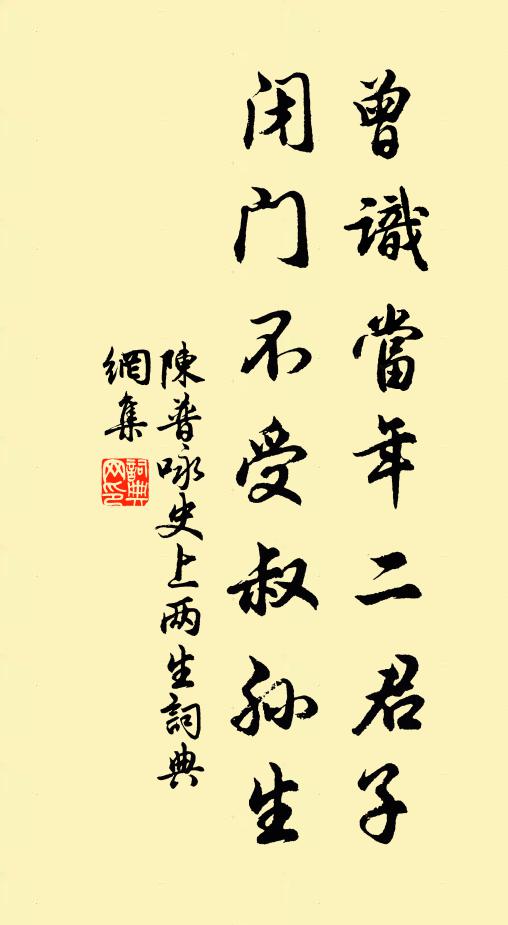 曾識當年二君子
闭门不受叔孙生
陳普咏史上两生詞典
網集
詞典網印